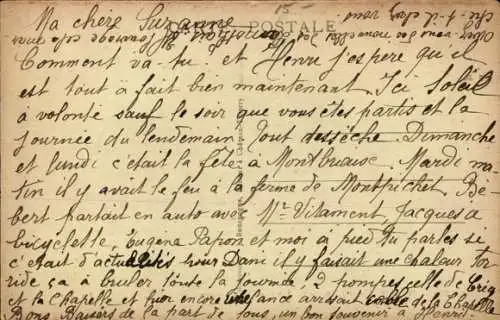 Ma chere Suzanne
CARTE POSTALE
15-
Comment va-tu. et Henri j'espere qu'il
est tout à fait bien maintenant. Ici Soleil
à volonté sauf le soir que vous êtes partis et la
journée du lendemain. Tout dessèche. Dimanche
et lundi c'était la fête à Montbuaux. Mardi ma-
tin il y avait le feu à la ferme de Montpichet. Bé-
bert partait en auto avec Mr Vilament, Jacques à
bicyclette, Eugène Papon et moi à pied tu parles si
c'était d'actualités hier Dam il y faisait une chaleur tor-
ride ça à bruler toute la journée, 2 pompes, celle de Creq
et la Chapelle et hier encore
Bons Baisers de la part de tous, un bon souvenir à Henri.